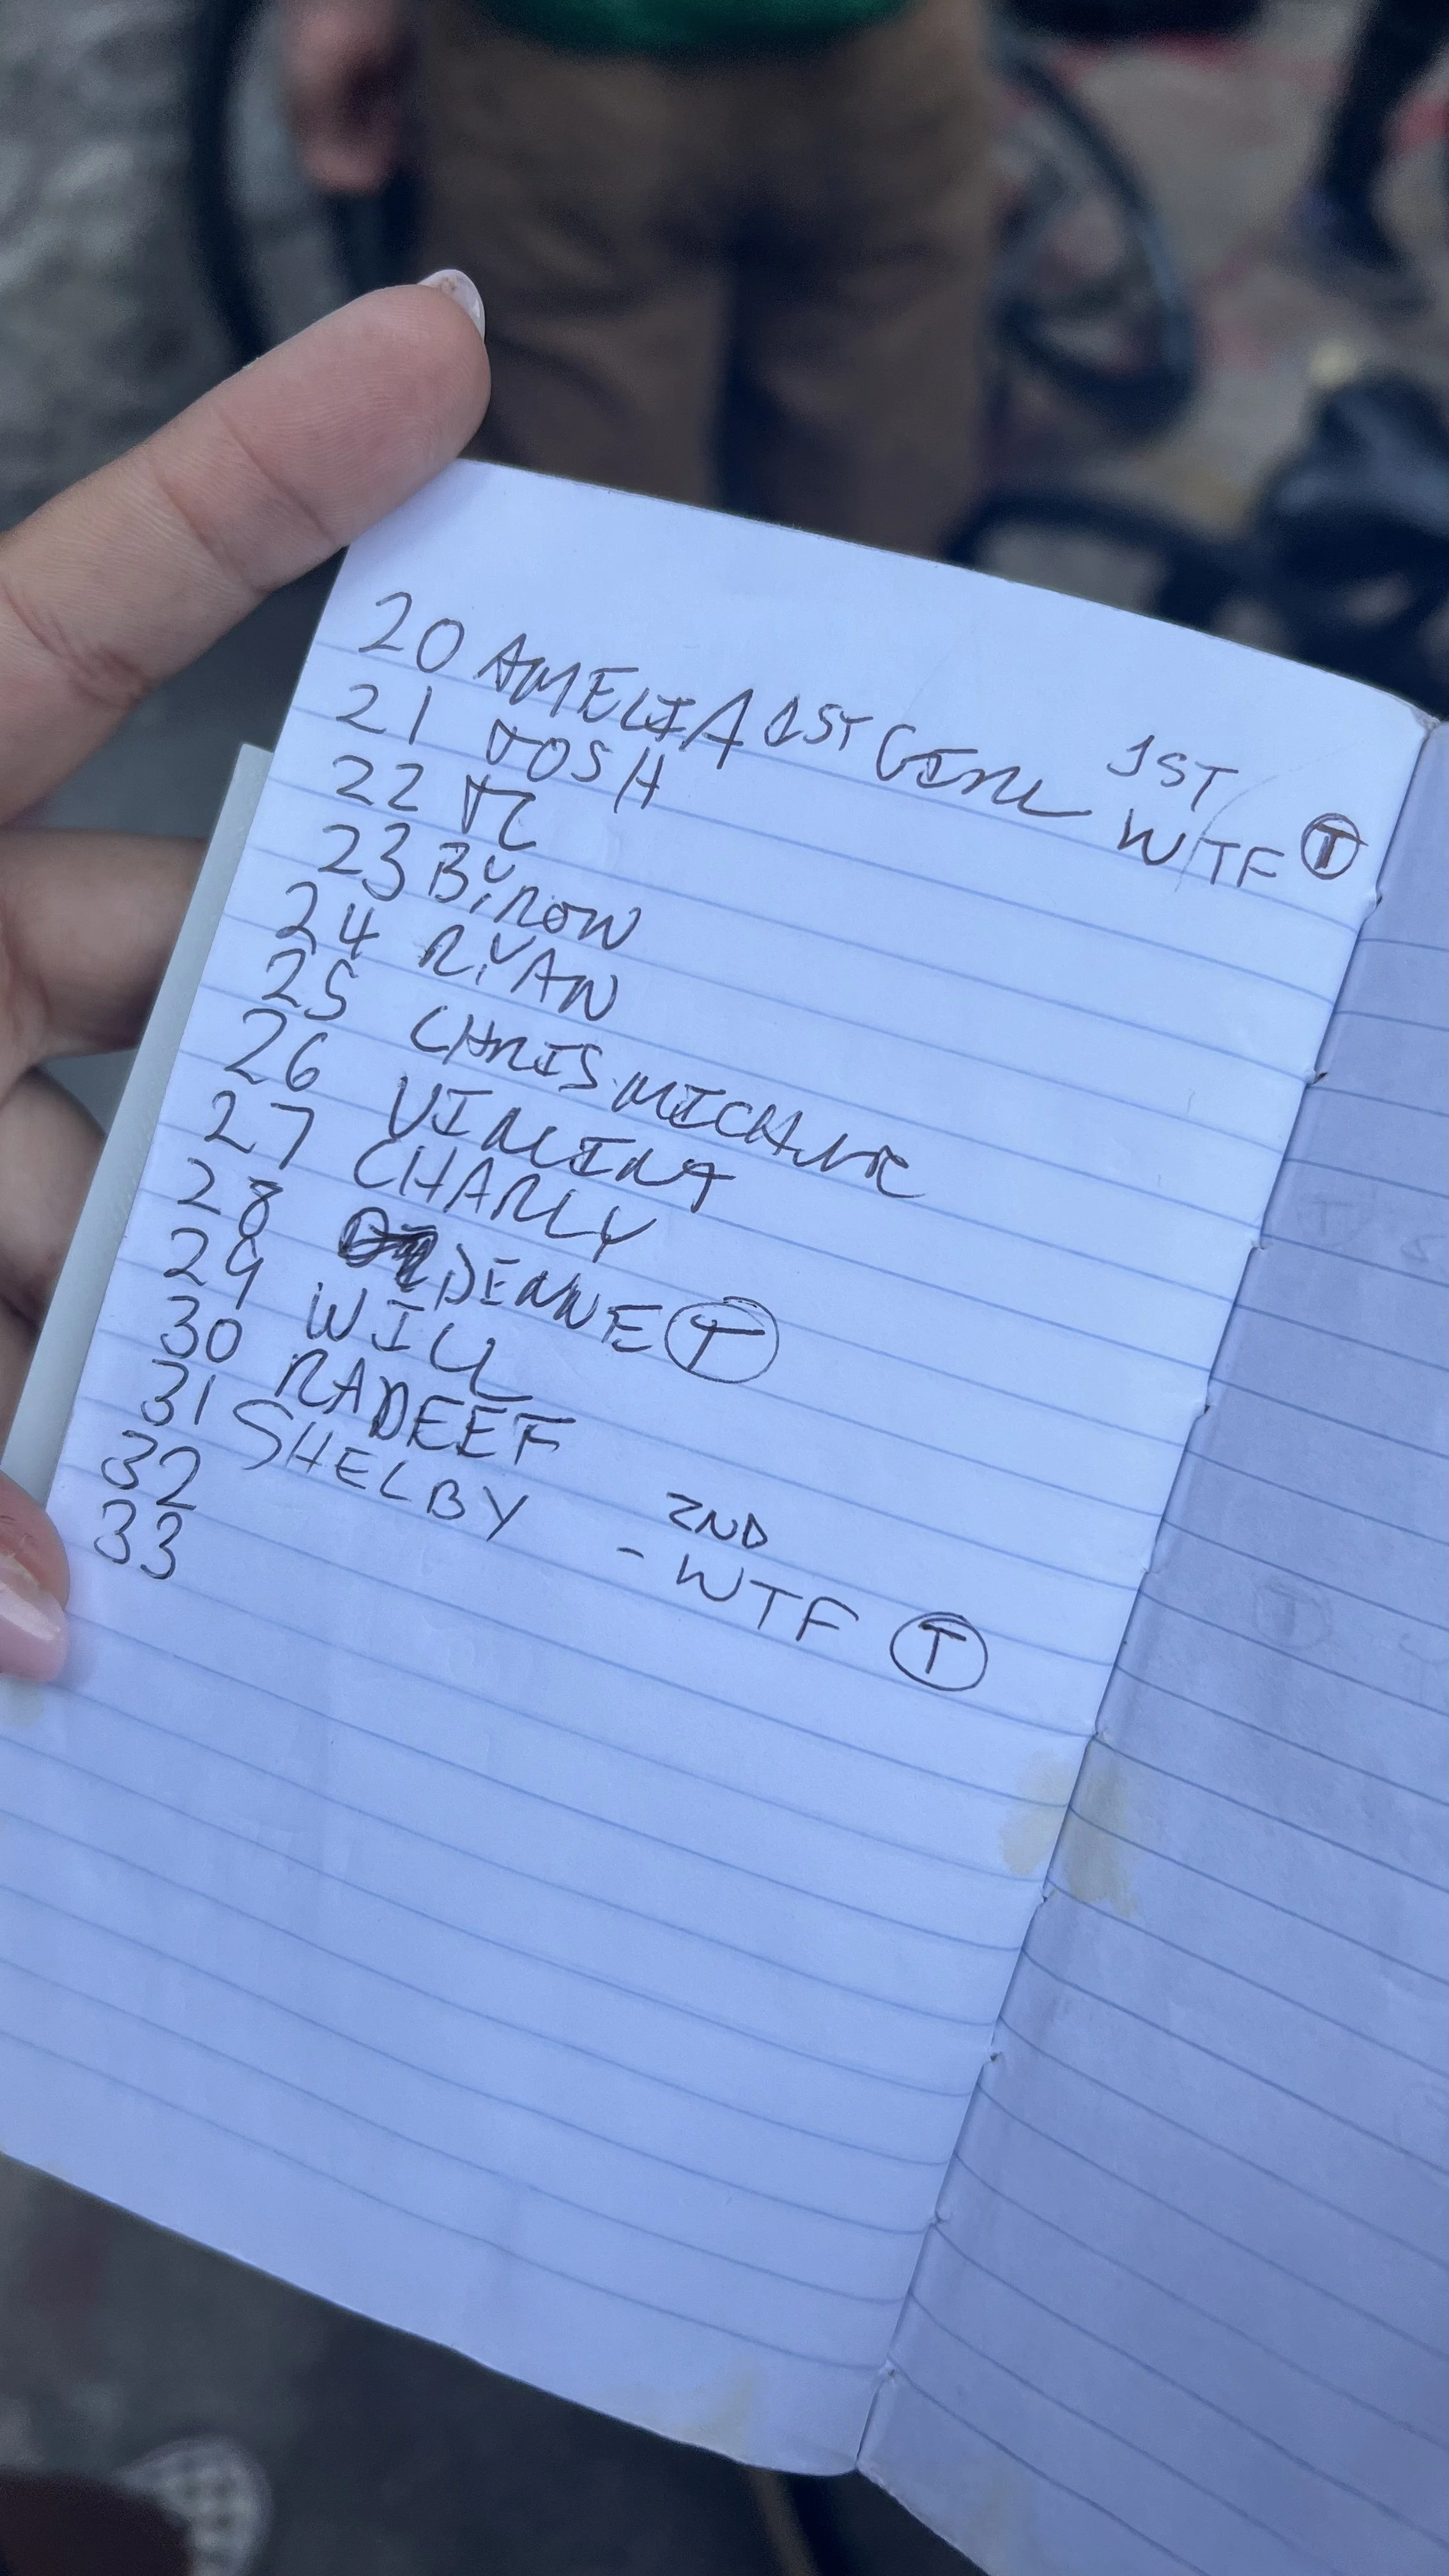 20 AMELIA 1ST GIRL 1ST WTF Ⓣ
21 JOSH
22 JC
23 BYRON
24 RYAN
25 CHRIS
26 VINCINT
27 CHARLY
28 DENNE Ⓣ
29 WILL
30 RADEEF
31 SHELBY - 2ND WTF Ⓣ
32
33